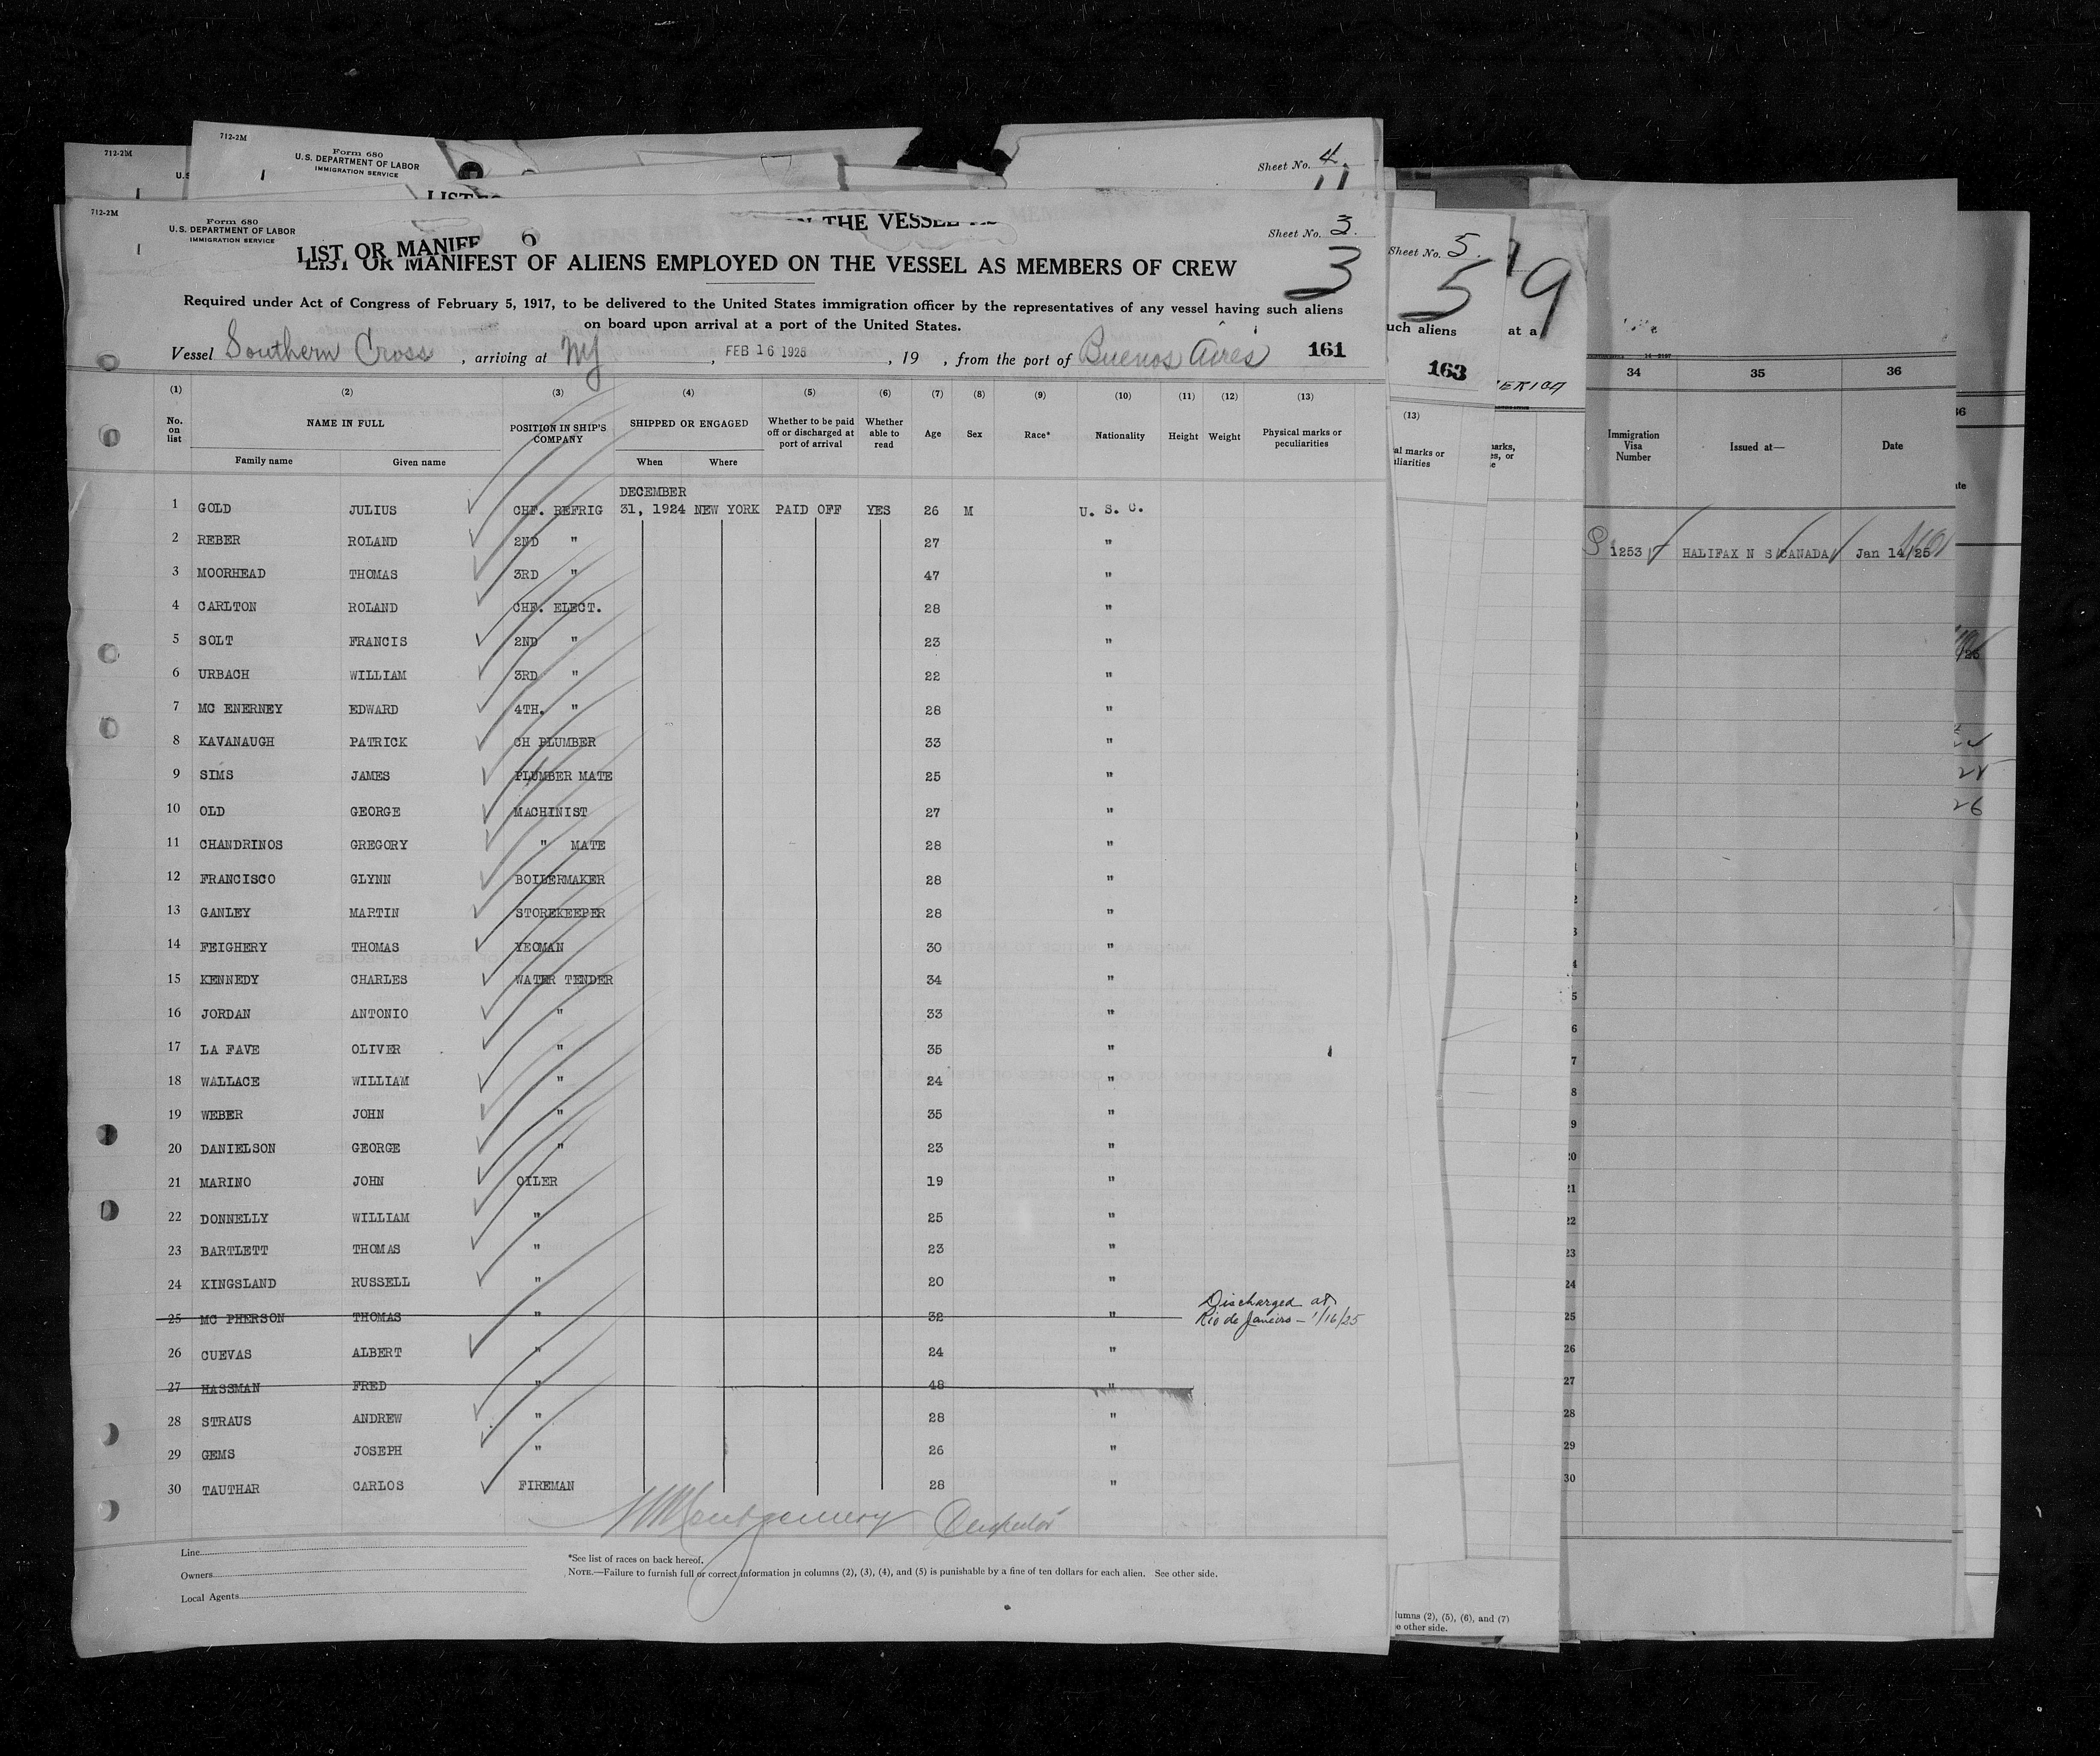 712-2M
712-2M
Form 680
U.S. DEPARTMENT OF LABOR
IMMIGRATION SERVICE
Sheet No. 4.
712-2M
Form 680
U.S. DEPARTMENT OF LABOR
IMMIGRATION SERVICE
THE VESSEL
Sheet No. 3.
LIST OR MANIFE
LIST OR MANIFEST OF ALIENS EMPLOYED ON THE VESSEL AS MEMBERS OF CREW
3
Required under Act of Congress of February 5, 1917, to be delivered to the United States immigration officer by the representatives of any vessel having such aliens
on board upon arrival at a port of the United States.
Vessel Southern Cross, arriving at NY, FEB 16 1925, 19 , from the port of Buenos Aires 161
(1) (2) (3) (4) (5) (6) (7) (8) (9) (10) (11) (12) (13)
No. on list NAME IN FULL POSITION IN SHIP'S COMPANY SHIPPED OR ENGAGED Whether to be paid off or discharged at port of arrival Whether able to read Age Sex Race* Nationality Height Weight Physical marks or peculiarities
Family name Given name When Where
DECEMBER
1 GOLD JULIUS CHF. REFRIG 31, 1924 NEW YORK PAID OFF YES 26 M U. S. C.
2 REBER ROLAND 2ND " 27 "
3 MOORHEAD THOMAS 3RD " 47 "
4 CARLTON ROLAND CHF. ELECT. 28 "
5 SOLT FRANCIS 2ND " 23 "
6 URBACH WILLIAM 3RD " 22 "
7 MC ENERNEY EDWARD 4TH. " 28 "
8 KAVANAUGH PATRICK CH PLUMBER 33 "
9 SIMS JAMES PLUMBER MATE 25 "
10 OLD GEORGE MACHINIST 27 "
11 CHANDRINOS GREGORY " MATE 28 "
12 FRANCISCO GLYNN BOILERMAKER 28 "
13 GANLEY MARTIN STOREKEEPER 28 "
14 FEIGHERY THOMAS YEOMAN 30 "
15 KENNEDY CHARLES WATER TENDER 34 "
16 JORDAN ANTONIO " 33 "
17 LA FAVE OLIVER " 35 "
18 WALLACE WILLIAM " 24 "
19 WEBER JOHN " 35 "
20 DANIELSON GEORGE " 23 "
21 MARINO JOHN OILER 19 "
22 DONNELLY WILLIAM " 25 "
23 BARTLETT THOMAS " 23 "
24 KINGSLAND RUSSELL " 20 "
25 MC PHERSON THOMAS " 32 " Discharged at
Rio de Janeiro - 1/16/25
26 CUEVAS ALBERT " 24 "
27 HASSMAN FRED " 48 "
28 STRAUS ANDREW " 28 "
29 GEMS JOSEPH " 26 "
30 TAUTHAR CARLOS FIREMAN 28 "
Montgomery Inspector
Line
Owners
Local Agents
*See list of races on back hereof.
NOTE.—Failure to furnish full or correct information in columns (2), (3), (4), and (5) is punishable by a fine of ten dollars for each alien. See other side.
Sheet No. 5.
5
uch aliens
163
(13)
al marks or
uliarities
9
at a
ERICA
arks,
es, or
lumns (2), (5), (6), and (7)
e other side.
34 35 36
Immigration Visa Number Issued at— Date
1253 HALIFAX N S CANADA Jan 14/25
5
6
7
8
9
20
21
22
23
24
25
26
27
28
29
30